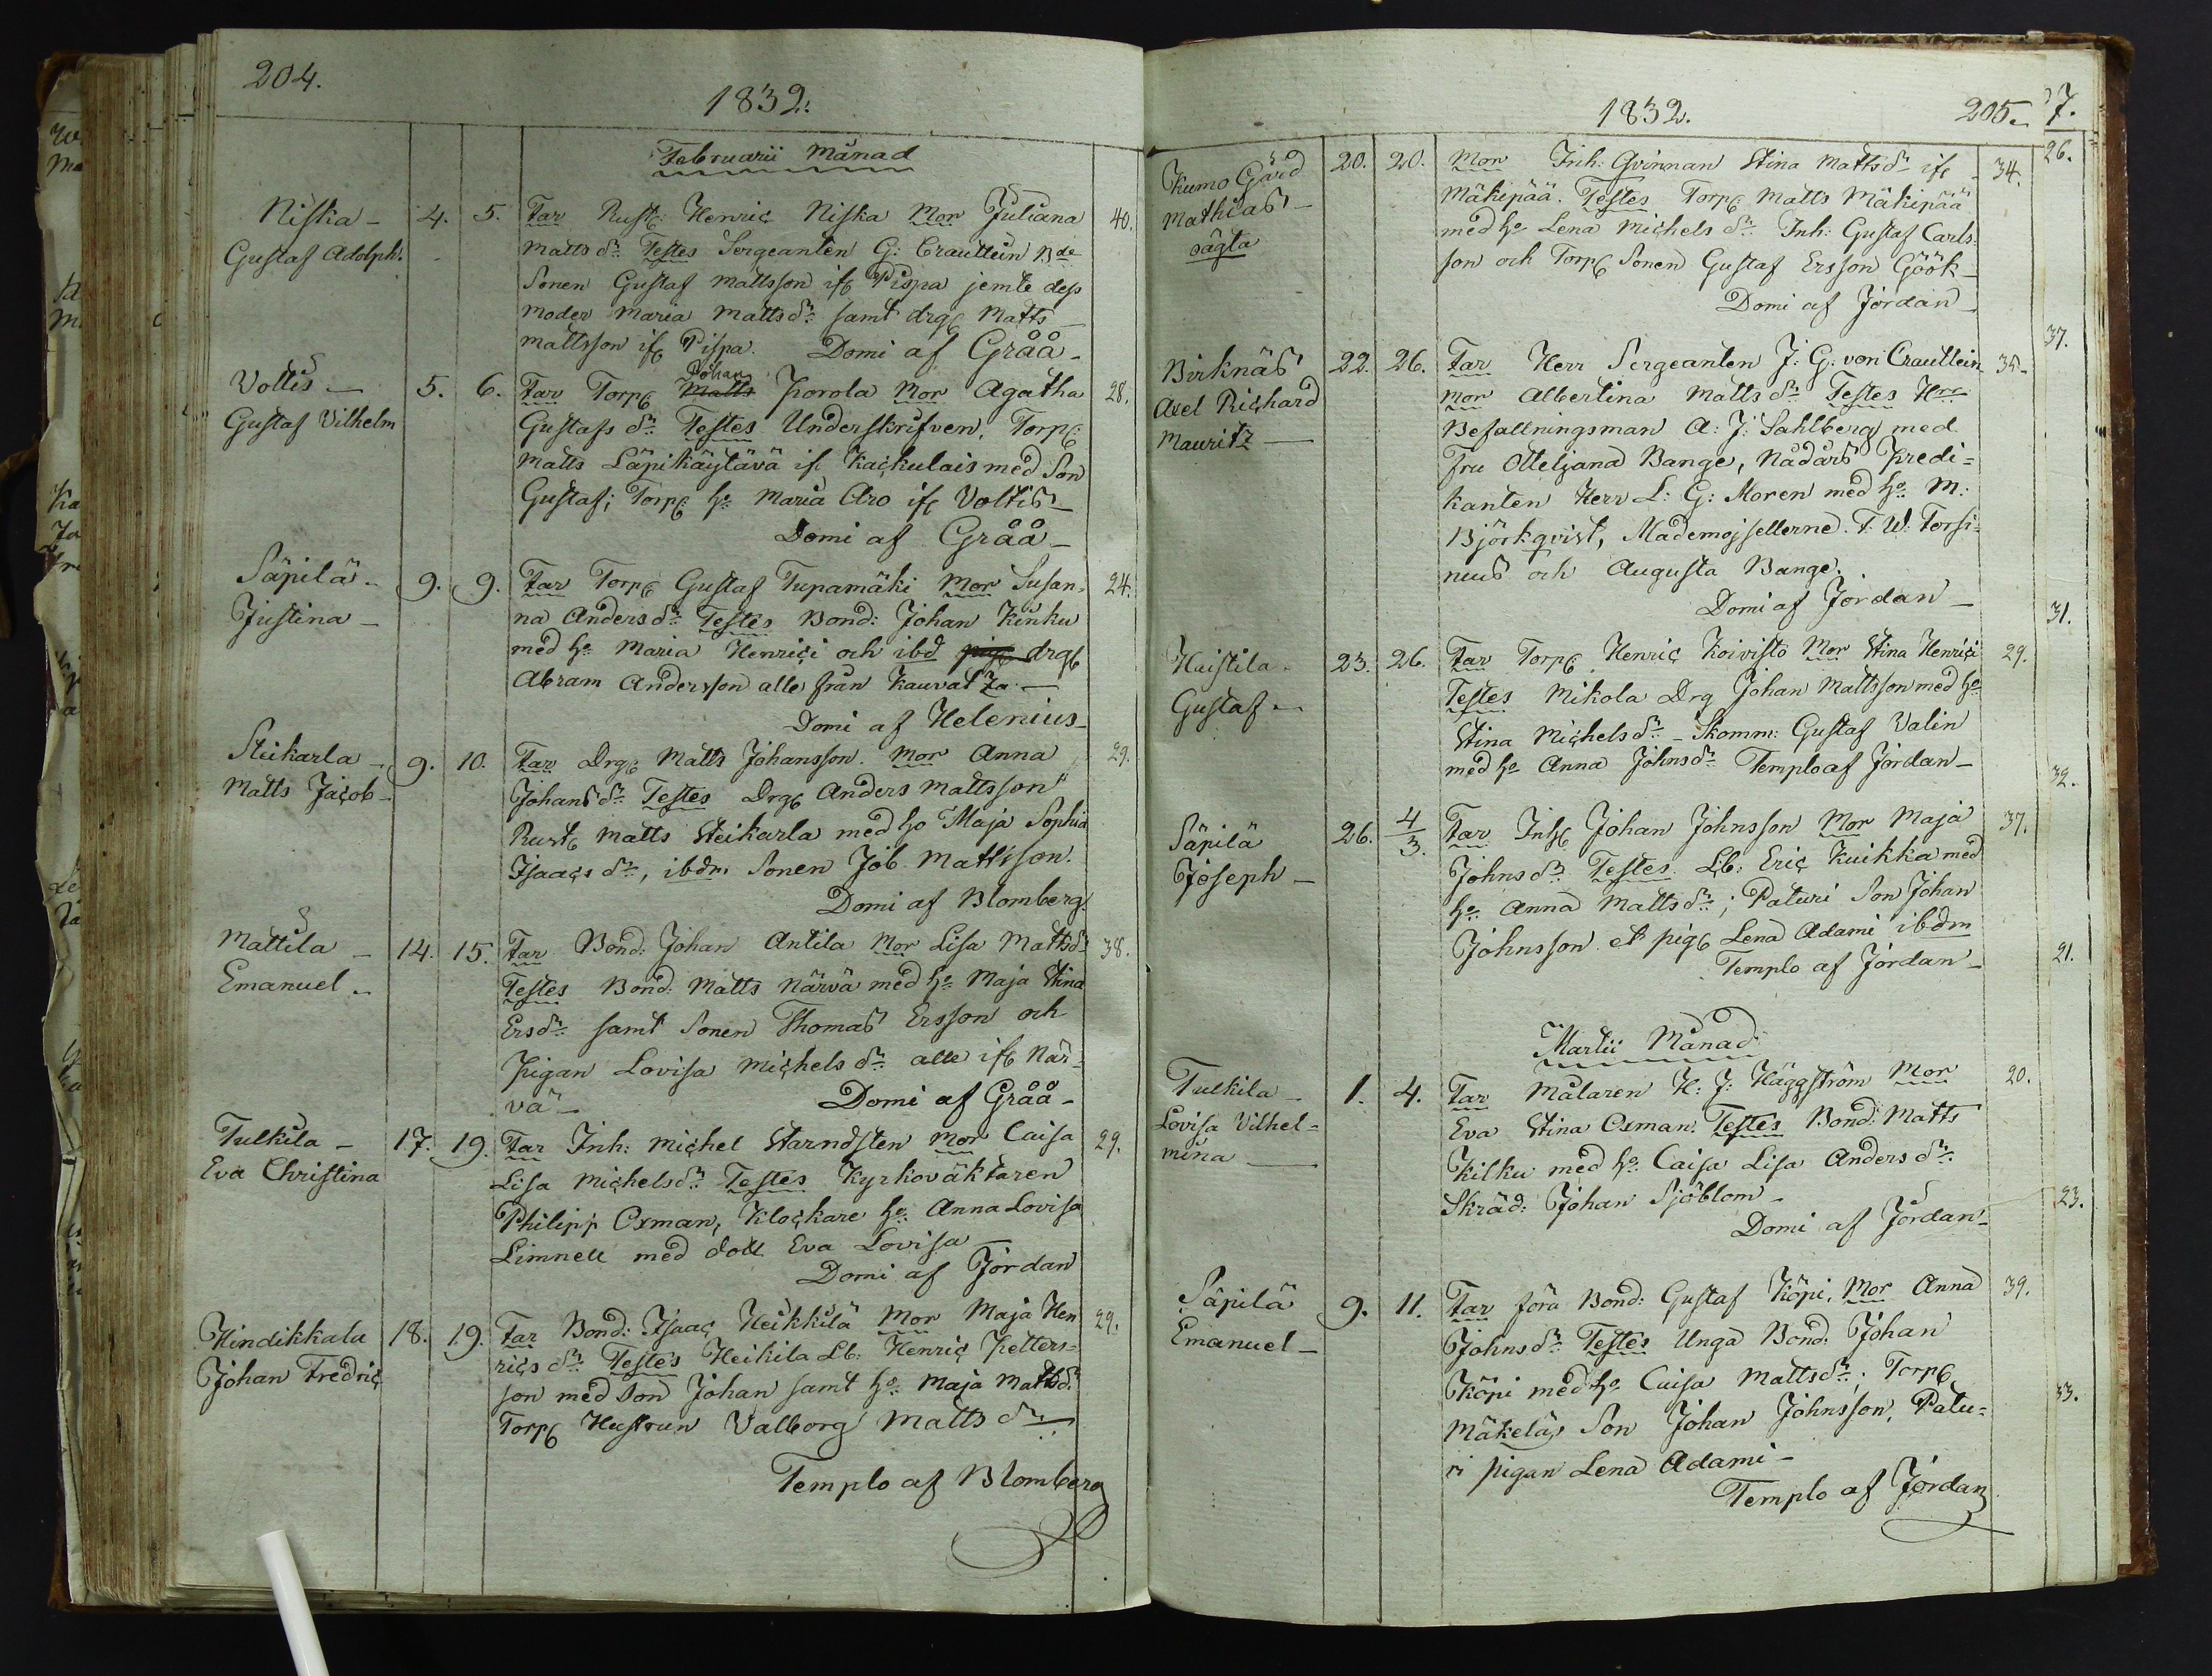 204.
1832.
Februarii Månad
Niska - 4. 5. Far Rust: Henric Niska Mor Juliana 40.
Gustaf Adolph. Matts dr. Testes Sergeanten G: Crautlein Bde
Sonen Gustaf Mattsson if Pispa jemte dess
moder Maria Matts dr. samt drg Matts
Mattsson if Pispa. Domi af Gråå -
Johan
Voltis - 5. 6. Far Torp Matts Porola Mor Agatha 28.
Gustaf Vilhelm Gustafs dr. Testes Underskrifven, Torp
Matts Läpikäytävä if Kackulais med Son
Gustaf; Torp: ho Maria Aro if Voltis -
Domi af Gråå -
Säpilä - 9. 9. Far Torp Gustaf Tupamäki Mor Susan- 24.
Justina - na Anders dr. Testes Bond: Johan Kinku
med ho Maria Henrici och ibd pig drg
Abram Andersson alle från Kauvatza -
Domi af Helenius -
Steikarla - 9. 10. Far Drg: Matts Johansson. Mor Anna 29.
Matts Jacob - Johans dr. Testes Drg Anders Mattsson
Rust Matts Steikarla med ho Maja Sophia
Isaacs dr., ibdm Sonen Job Mattsson.
Domi af Blomberg.
Mattila - 14. 15. Far Bond: Johan Antila Mor Lisa Matts dr 38.
Emanuel - Testes Bond: Matts Närvä med ho Maja Stina
Ers dr. samt Sonen Thomas Ersson och
Pigan Lovisa Michels dr. alle if När-
vä - Domi af Gråå -
Tulkila - 17. 19. Far Inh: Michel Starndsten Mor Caisa 29.
Eva Christina Lisa Michels dr. Testes Kyrkoväktaren
Philipp Oxman, Klockare ho Anna Lovisa
Limnell med dott Eva Lovisa
Domi af Jordan
Hindikkala 18. 19. Far Bond: Isaac Heikkilä Mor Maja Hen 29.
Johan Fredric rics dr. Testes Heikila Lb: Henric Petters-
son med Son Johan samt ho: Maja Matts dr.
Torp Hustrun Valborg Matts dr.
Templo af Blomberg
1832. 205.
7.
Kumo Gård 20. 20. Mor Inh: Qvinnan Stina Matts dr. if 34. 26.
Mathias - Mäkipää. Testes Torp Matts Mäkipää
oägta med ho Lena Michels dr. Inh: Gustaf Carls-
son och Torp Sonen Gustaf Ersson Göök -
Domi af Jordan -
37.
Birknäs 22. 26. Far Herr Sergeanten J: G: von Crautlein 35.
Axel Richard Mor Albertina Matts dr. Testes Hrr
Mauritz - Befallningsman A: J: Sahlberg med
Fru Otteljana Bange, Nådårs Predi-
kanten Herr L: G: Moren med ho M:
Björkqvist, Mademojsellerne. F. W. Forsi-
nius och Augusta Bange.
Domi af Jordan -
31.
Huistila - 23. 26. Far Torp. Henric Koivisto Mor Stina Henrici 29.
Gustaf - Testes Mikola Drg Johan Mattsson med ho
Stina Michels dr. - Skomm: Gustaf Valin
med ho Anna Johns dr. Templo af Jordan -
32.
Säpilä 26. 4/3. Far Inh Johan Johnsson Mor Maja 37.
Joseph - Johns dr. Testes Lb: Eric Kuikka med
ho Anna Matts dr.; Paturi Son Johan
Johnsson et pig Lena Adami ibdm
Templo af Jordan -
21.
Martii Månad
Tulkila - 1. 4. Far Målaren H: J: Häggström Mor 20.
Lovisa Vilhel- Eva Stina Oxman. Testes Bond: Matts
mina - Kilku med ho Caisa Lisa Anders dr.
Skräd: Johan Sjöblom -
Domi af Jordan -
23.
Säpilä 9. 11. Far förä Bond: Gustaf Köpi, Mor Anna 39.
Emanuel - Johns dr. Testes Unga Bond: Johan
Köpi med ho Caisa Matts dr.; Torp
Mäkelä, Son Johan Johnsson, Patu-
ri pigan Lena Adami -
Templo af Jordan
33.